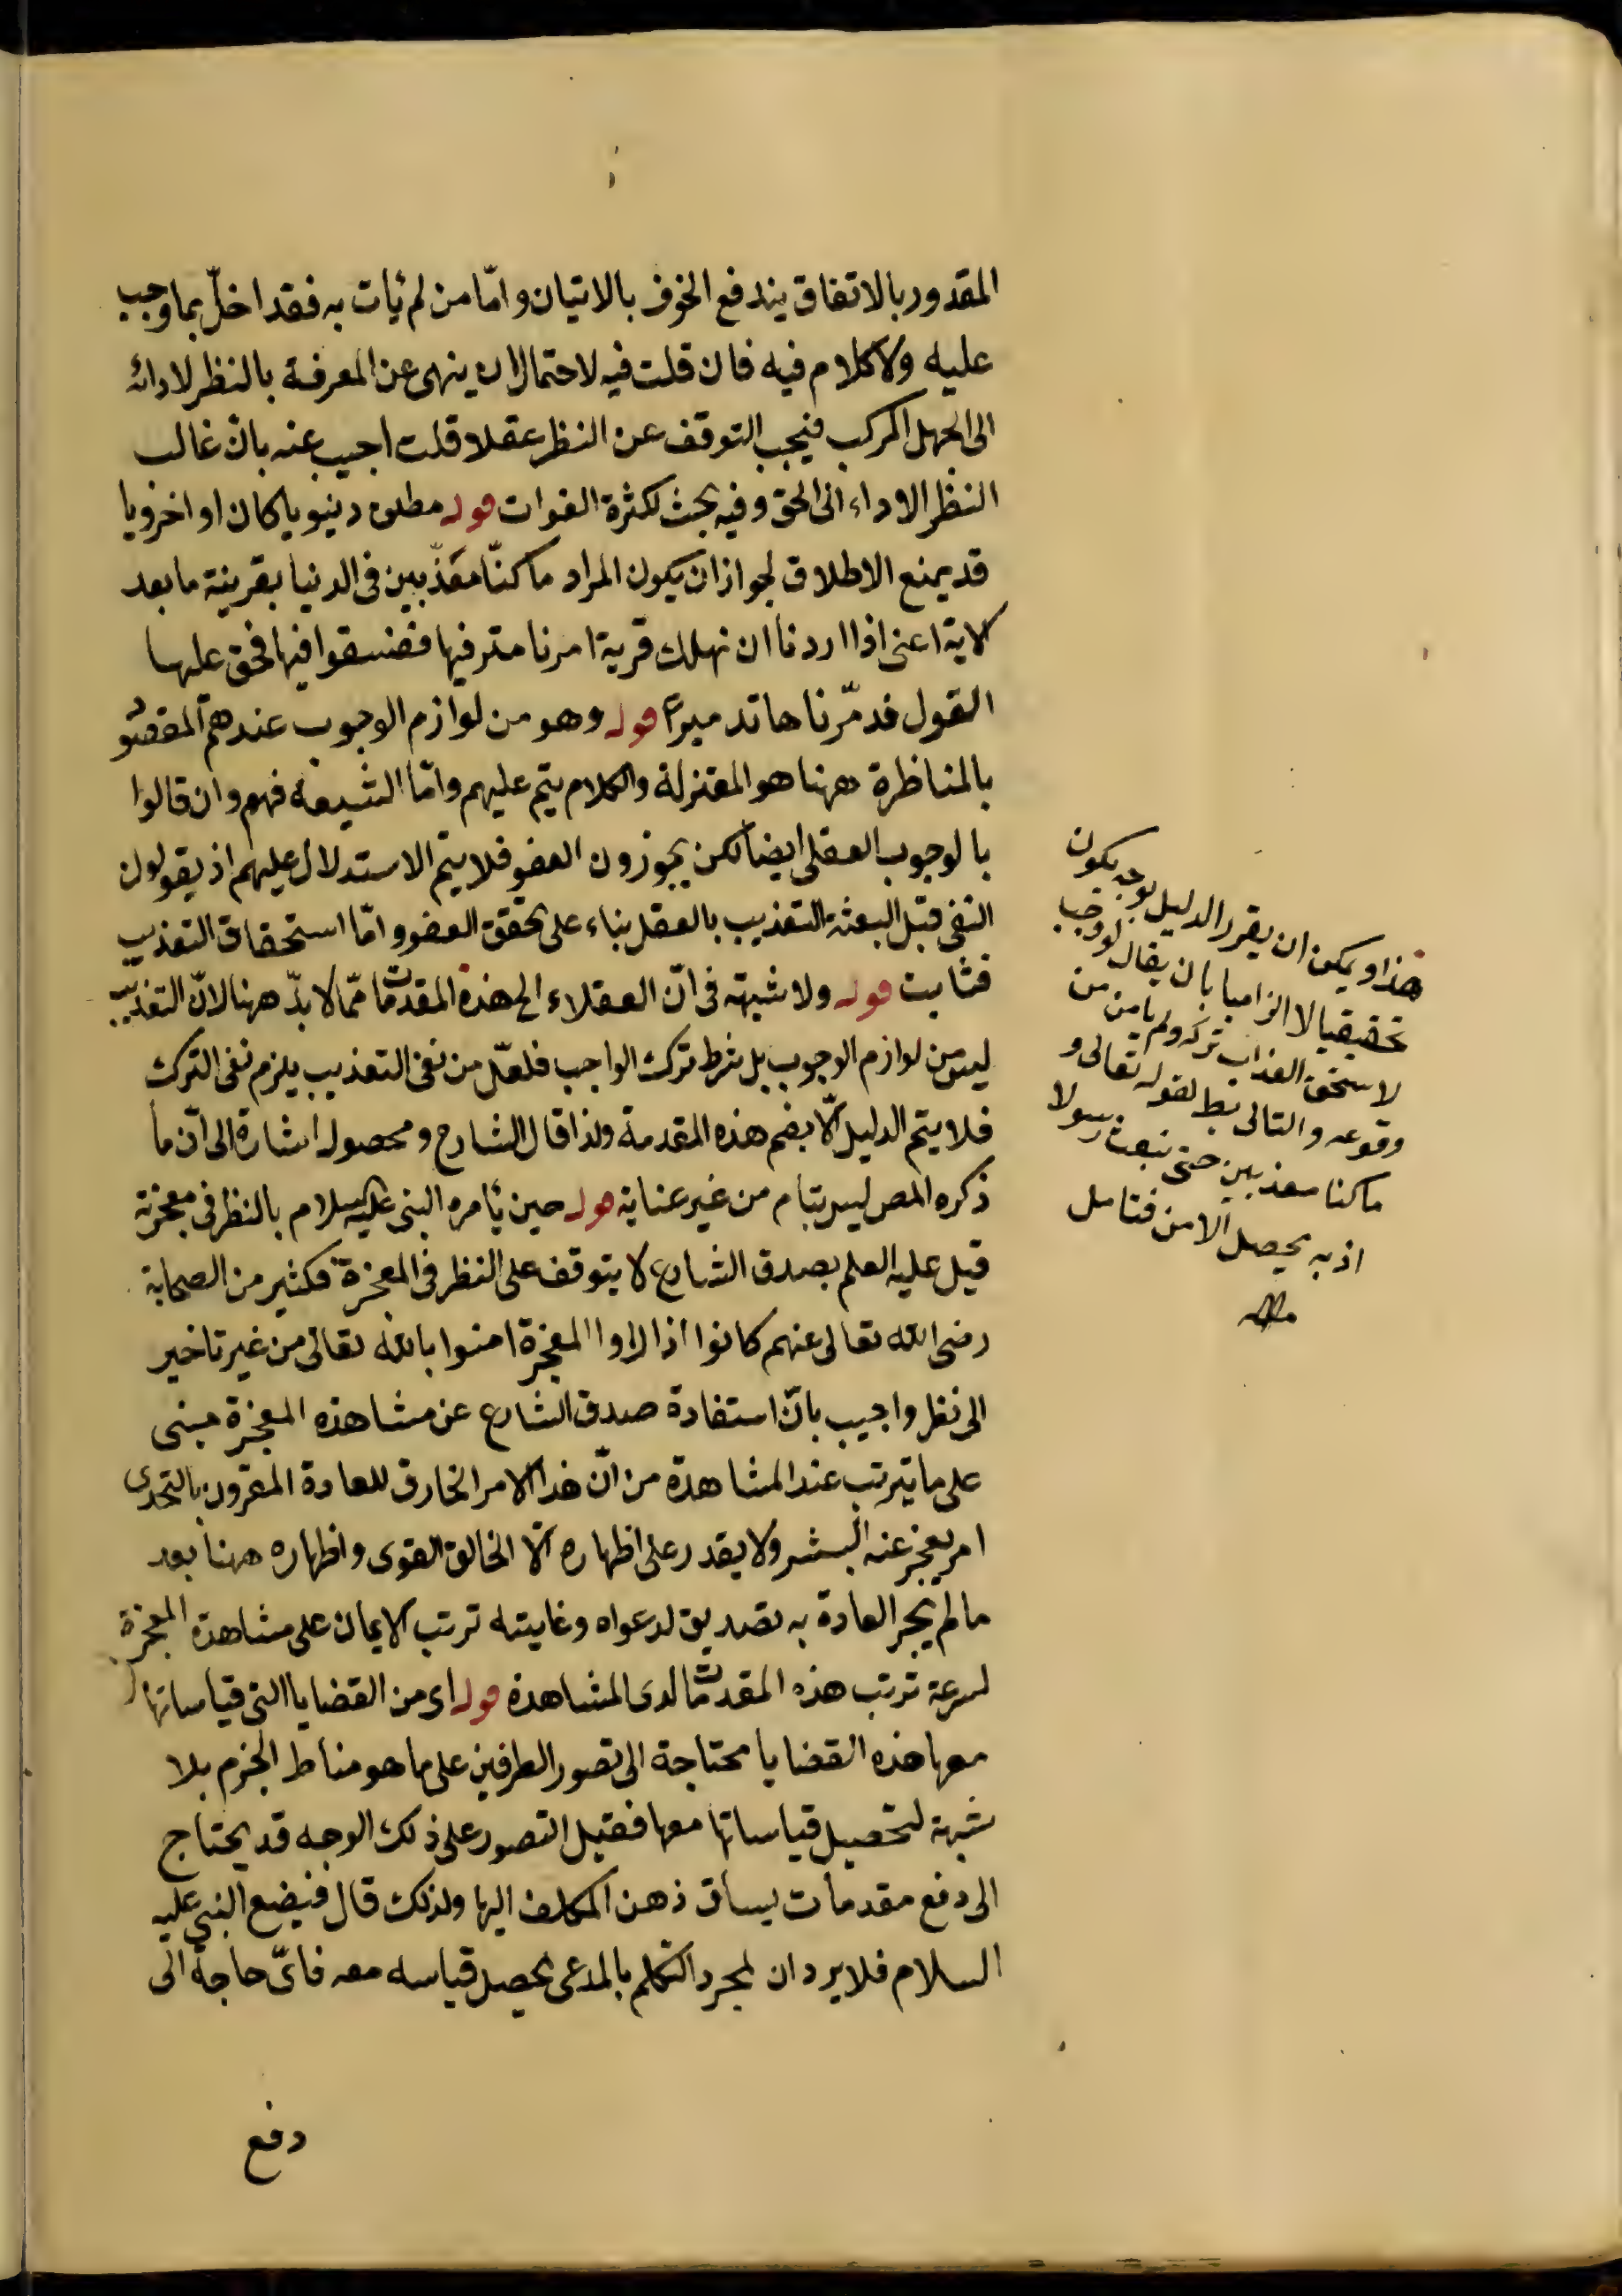 المقدور بالاتفاق يندفع الخوف بالاتيان وامّا من لم يأت به فقد اخلّ بما وجب
عليه ولا كلام فيه فان قلت فيه لاحتمال ان ينهى عن المعرفة بالنظر لادائه
الى الجهل المركب فيجب التوقف عن النظر عقلا قلت اجيب عنه بانّ غالب
النظر الاداء الى الحق وفيه بحث لكثرة الفوات قوله مطلق دنيويا كان او اخرويا
قد يمنع الاطلاق لجواز ان يكون المراد ما كنّا معذّبين فى الدنيا بقرينة ما بعد
الاية اعنى اذا اردنا ان نهلك قرية امرنا مترفيها ففسقوا فيها فحق عليها
القول فدمّرناها تدميرًا قوله وهو من لوازم الوجوب عندهم المقصود
بالمناظرة ههنا هو المعتزلة والكلام يتم عليهم وامّا الشيعة فهم وان قالوا
بالوجوب العقلى ايضا لكن يجوزون العفو فلا يتم الاستدلال عليهم اذ يقولون
النفى قبل البعثة التعذيب بالعقل بناء على تحقق العفو وامّا استحقاق التعذيب
فثابت قوله ولا شبهة فى انّ العقلاء الخ هذه المقدمات ممّا لا بدّ ههنا لانّ التعذيب
ليس من لوازم الوجوب بل بشرط ترك الواجب فلعلّ من نفى التعذيب يلزم نفى الترك
فلا يتم الدليل الّا بضم هذه المقدمة ولذا قال الشارح ومحصوله اشارة الى انّ ما
ذكره المص ليس بتام من غير عناية قوله حين يأمره النبى عليه السلام بالنظر فى معجزته
قيل عليه العلم بصدق الشارع لا يتوقف على النظر فى المعجزة فكثير من الصحابة
رضى الله تعالى عنهم كانوا اذا راوا المعجزة امنوا بالله تعالى من غير تاخير
الى نظر واجيب بانّ استفادة صدق الشارع عن مشاهدة المعجزة مبنى
على ما يترتب عند المشاهدة من انّ هذا الامر الخارق للعادة المقرون بالتحدى
امر يعجز عنه البشر ولا يقدر على اظهاره الّا الخالق القوى واظهاره ههنا بعد
ما لم يجر العادة به تصديق لدعواه وغايته ترتب الايمان على مشاهدة المعجزة
لسرعة ترتب هذه المقدمات لدى المشاهدة قوله اى من القضايا التى قياساتها
معها هذه القضايا محتاجة الى تصور الطرفين على ما هو مناط الجزم بلا
شبهة لتحصيل قياساتها معها فقبل التصور على ذلك الوجه قد يحتاج
الى دفع مقدمات يساق ذهن المكلف اليها ولذلك قال فيضع النبى عليه
السلام فلا يرد ان لمجرد التكلم بالمدعى يحصل قياسه معه فاىّ حاجة الى
دفع
هذا ويمكن ان يقرر الدليل بوجه يكون
تحقيقيا لا الزاميا بان يقال لو وجب
لاستحق العذاب تركه ولم يامن من
وقوعه والتالى بط لقوله تعالى و
ما كنا معذبين حتى نبعث رسولا
اذ به يحصل الامن فتامل